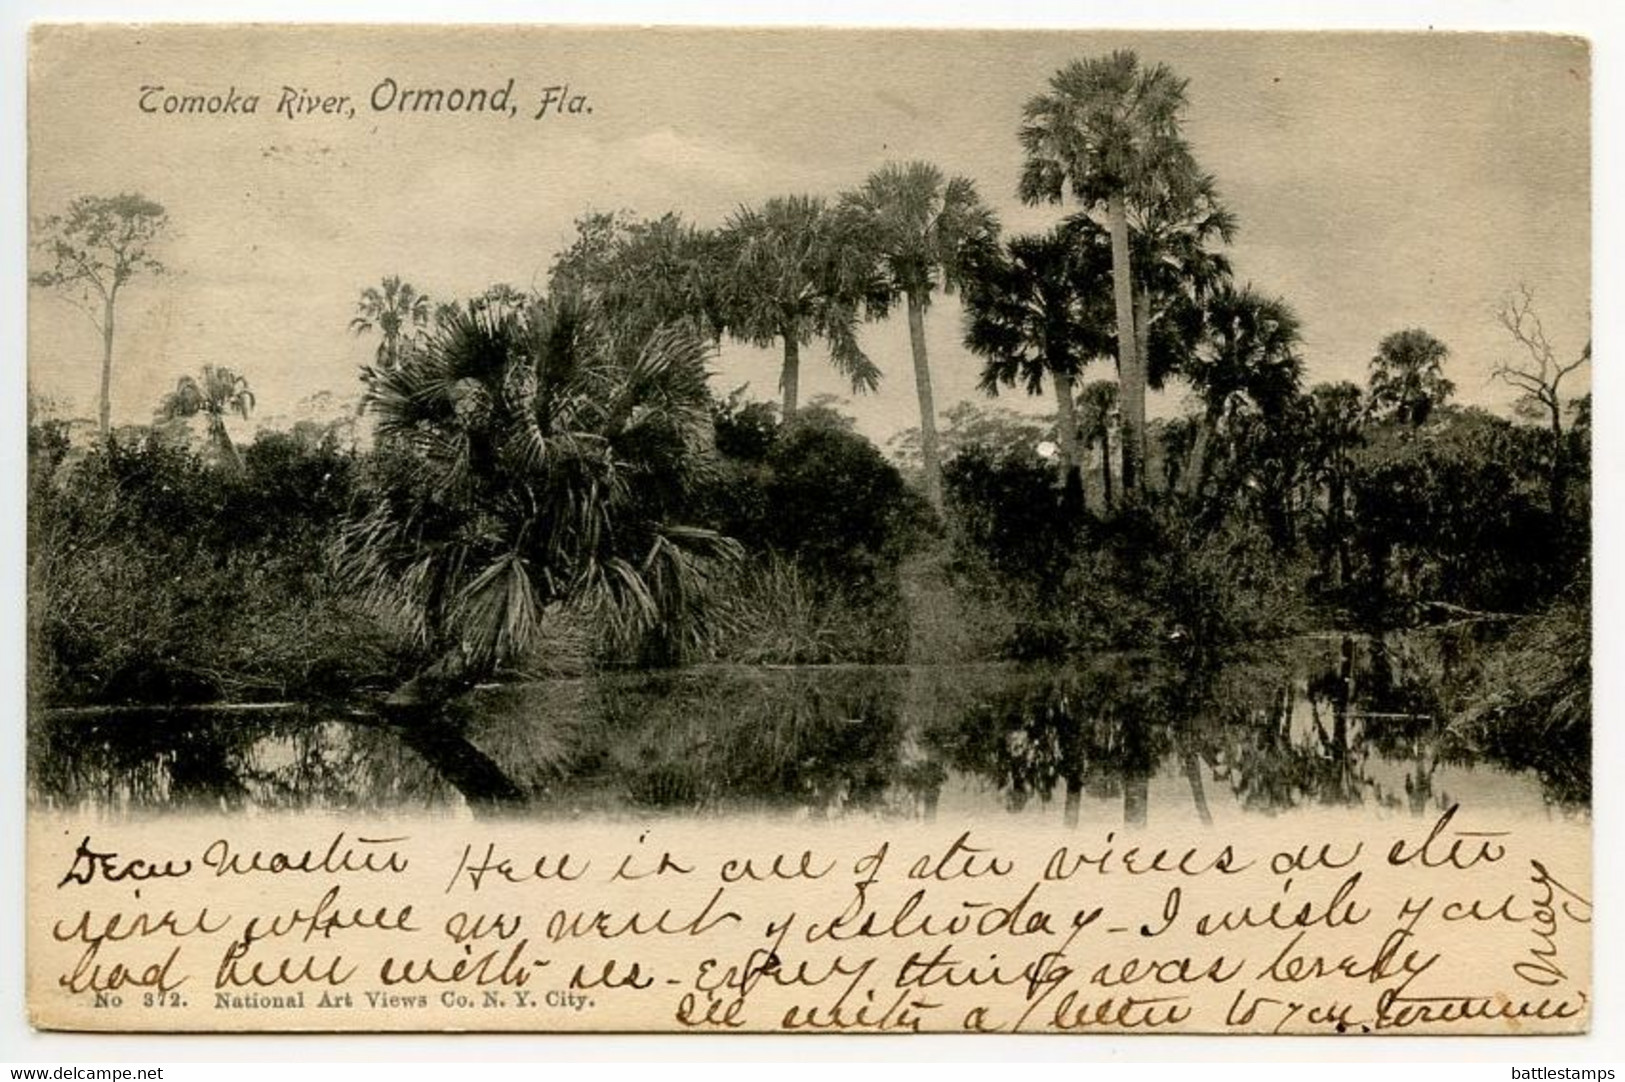 Tomoka River, Ormond, Fla.
Dear Mother Here is one of the views on the
river where we went yesterday - I wish you
had been with us - Every thing was lovely
Ill write a letter to you tomorrow
May
No 372. National Art Views Co. N. Y. City.
delcampe.net
battlestamps